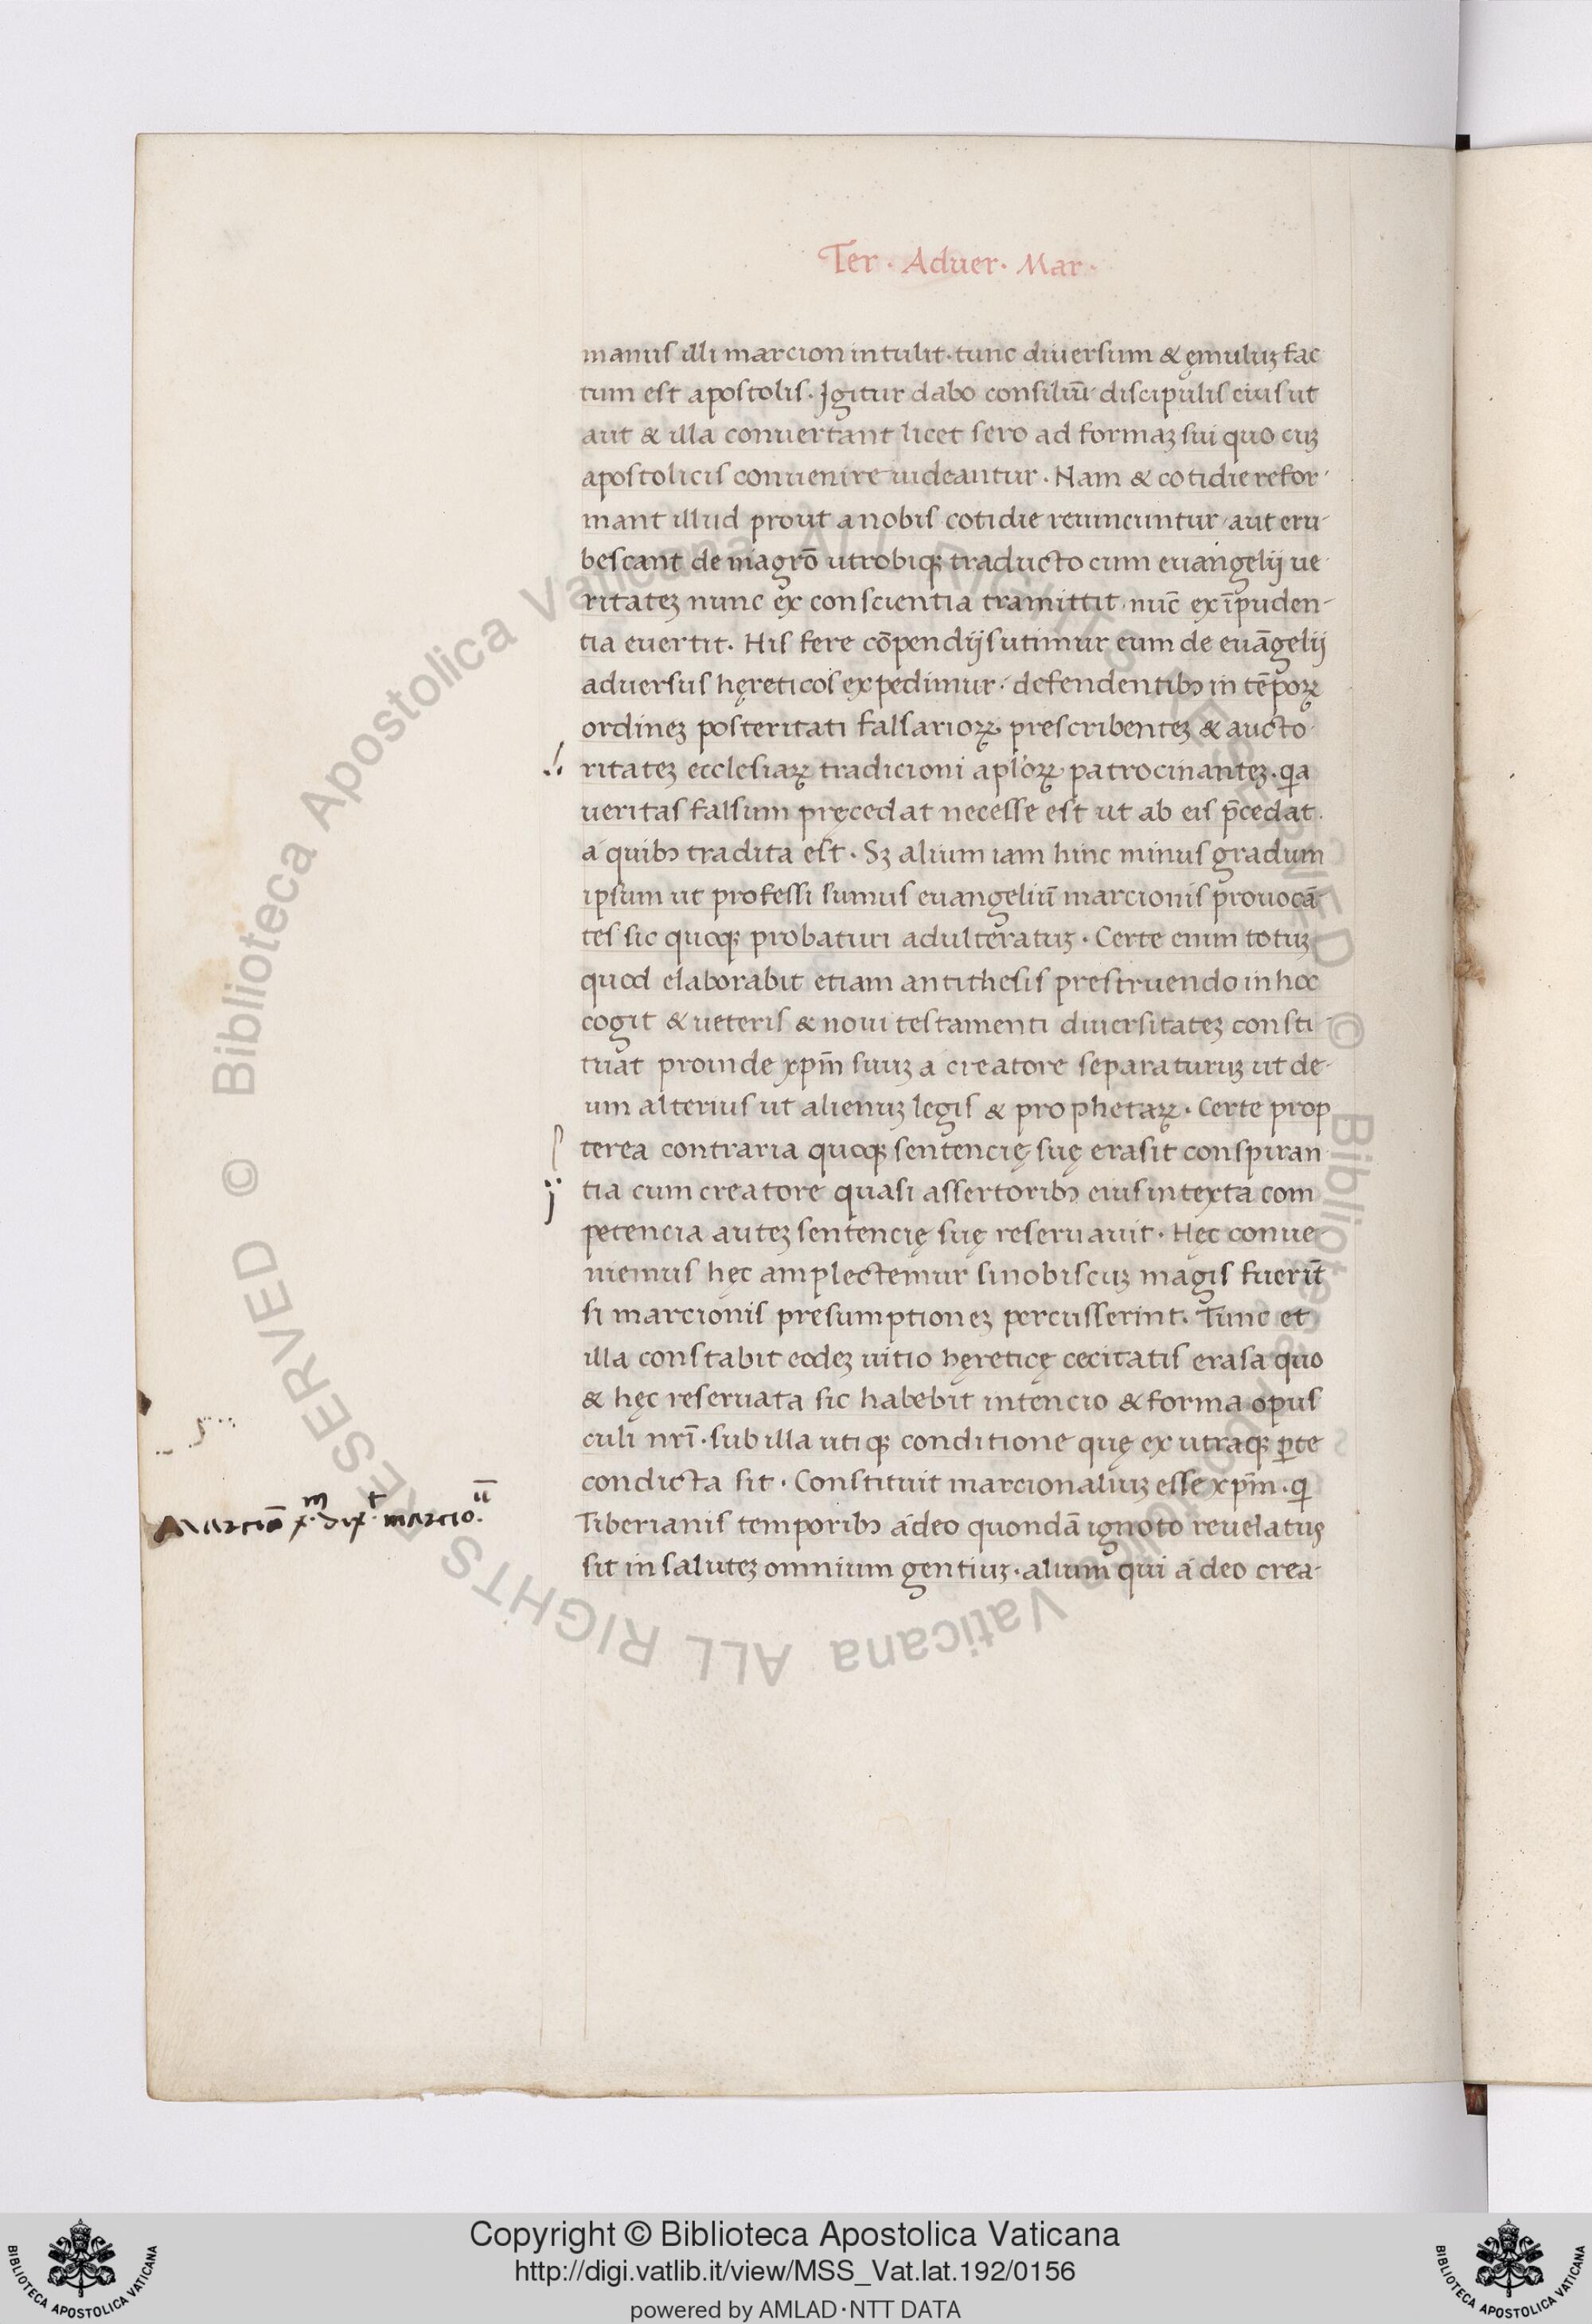 Ter · Aduer · Mar ·
manus illi marcion intulit · tunc diuersum & ęmuluꝫ fac
tum est apostolis · Igitur dabo consiliū discipulis eius ut
aut & illa conuertant licet sero ad formaꝫ sui quo cuꝫ
apostolicis conuenire uideantur · Nam & cotidie refor-
mant illud prout a nobis cotidie reuincuntur · aut eru-
bescant de magrō utrobiqꝫ traducto cum euangelij ue-
ritateꝫ nunc ex conscientia tramittit · nūc ex īpuden-
tia euertit · His fere cōpendijs utimur cum de euāgelij
aduersus hęreticos expedimur · defendentibꝫ in tēpoꝝ
ordineꝫ posteritati falsarioꝝ prescribenteꝫ & aucto-
ritateꝫ ecclesiaꝝ tradicioni aplōꝝ patrocinanteꝫ · qꝛa
ueritas falsum pręcedat necesse est ut ab eis p̄cedat ·
a quibꝫ tradita est · Sꝫ alium iam hinc minus gradum
ipsum ut professi sumus euangeliū marcionis prouocā-
tes sic quoqꝫ probaturi adulteratuꝫ · Certe enim totuꝫ
quod elaborabit etiam antithesis prestruendo in hoc
cogit & ueteris & noui testamenti diuersitateꝫ consti-
tuat proinde xp̄m suuꝫ a creatore separaturuꝫ ut de-
um alterius ut alienuꝫ legis & prophetaꝝ · Certe prop
terea contraria quoqꝫ sentencię suę erasit conspiran-
tia cum creatore quasi assertoribꝫ eius intexta com
petencia auteꝫ sentencię suę reseruauit · Hęc conue-
niemus hęc amplectemur si nobiscuꝫ magis fuerīt
si marcionis presumptioneꝫ percusserint · Tunc et
illa constabit eodeꝫ uitio hęreticę cecitatis erasa quo
& hęc reseruata sic habebit intencio & forma opus
culi nrī · sub illa utiqꝫ conditione quę ex utraqꝫ ꝑte
condicta sit · Constituit marcion aliuꝫ esse xp̄m · qͥ
Tiberianis temporibꝫ a deo quondā ignoto reuelatuꝫ
sit in saluteꝫ omnium gentiuꝫ · alium qui a deo crea-
Copyright © Biblioteca Apostolica Vaticana
http://digi.vatlib.it/view/MSS_Vat.lat.192/0156
powered by AMLAD·NTT DATA
BIBLIOTECA APOSTOLICA VATICANA
BIBLIOTECA APOSTOLICA VATICANA
© Biblioteca Apostolica Vaticana ALL RIGHTS RESERVED © Biblioteca Apostolica Vaticana ALL RIGHTS RESERVED